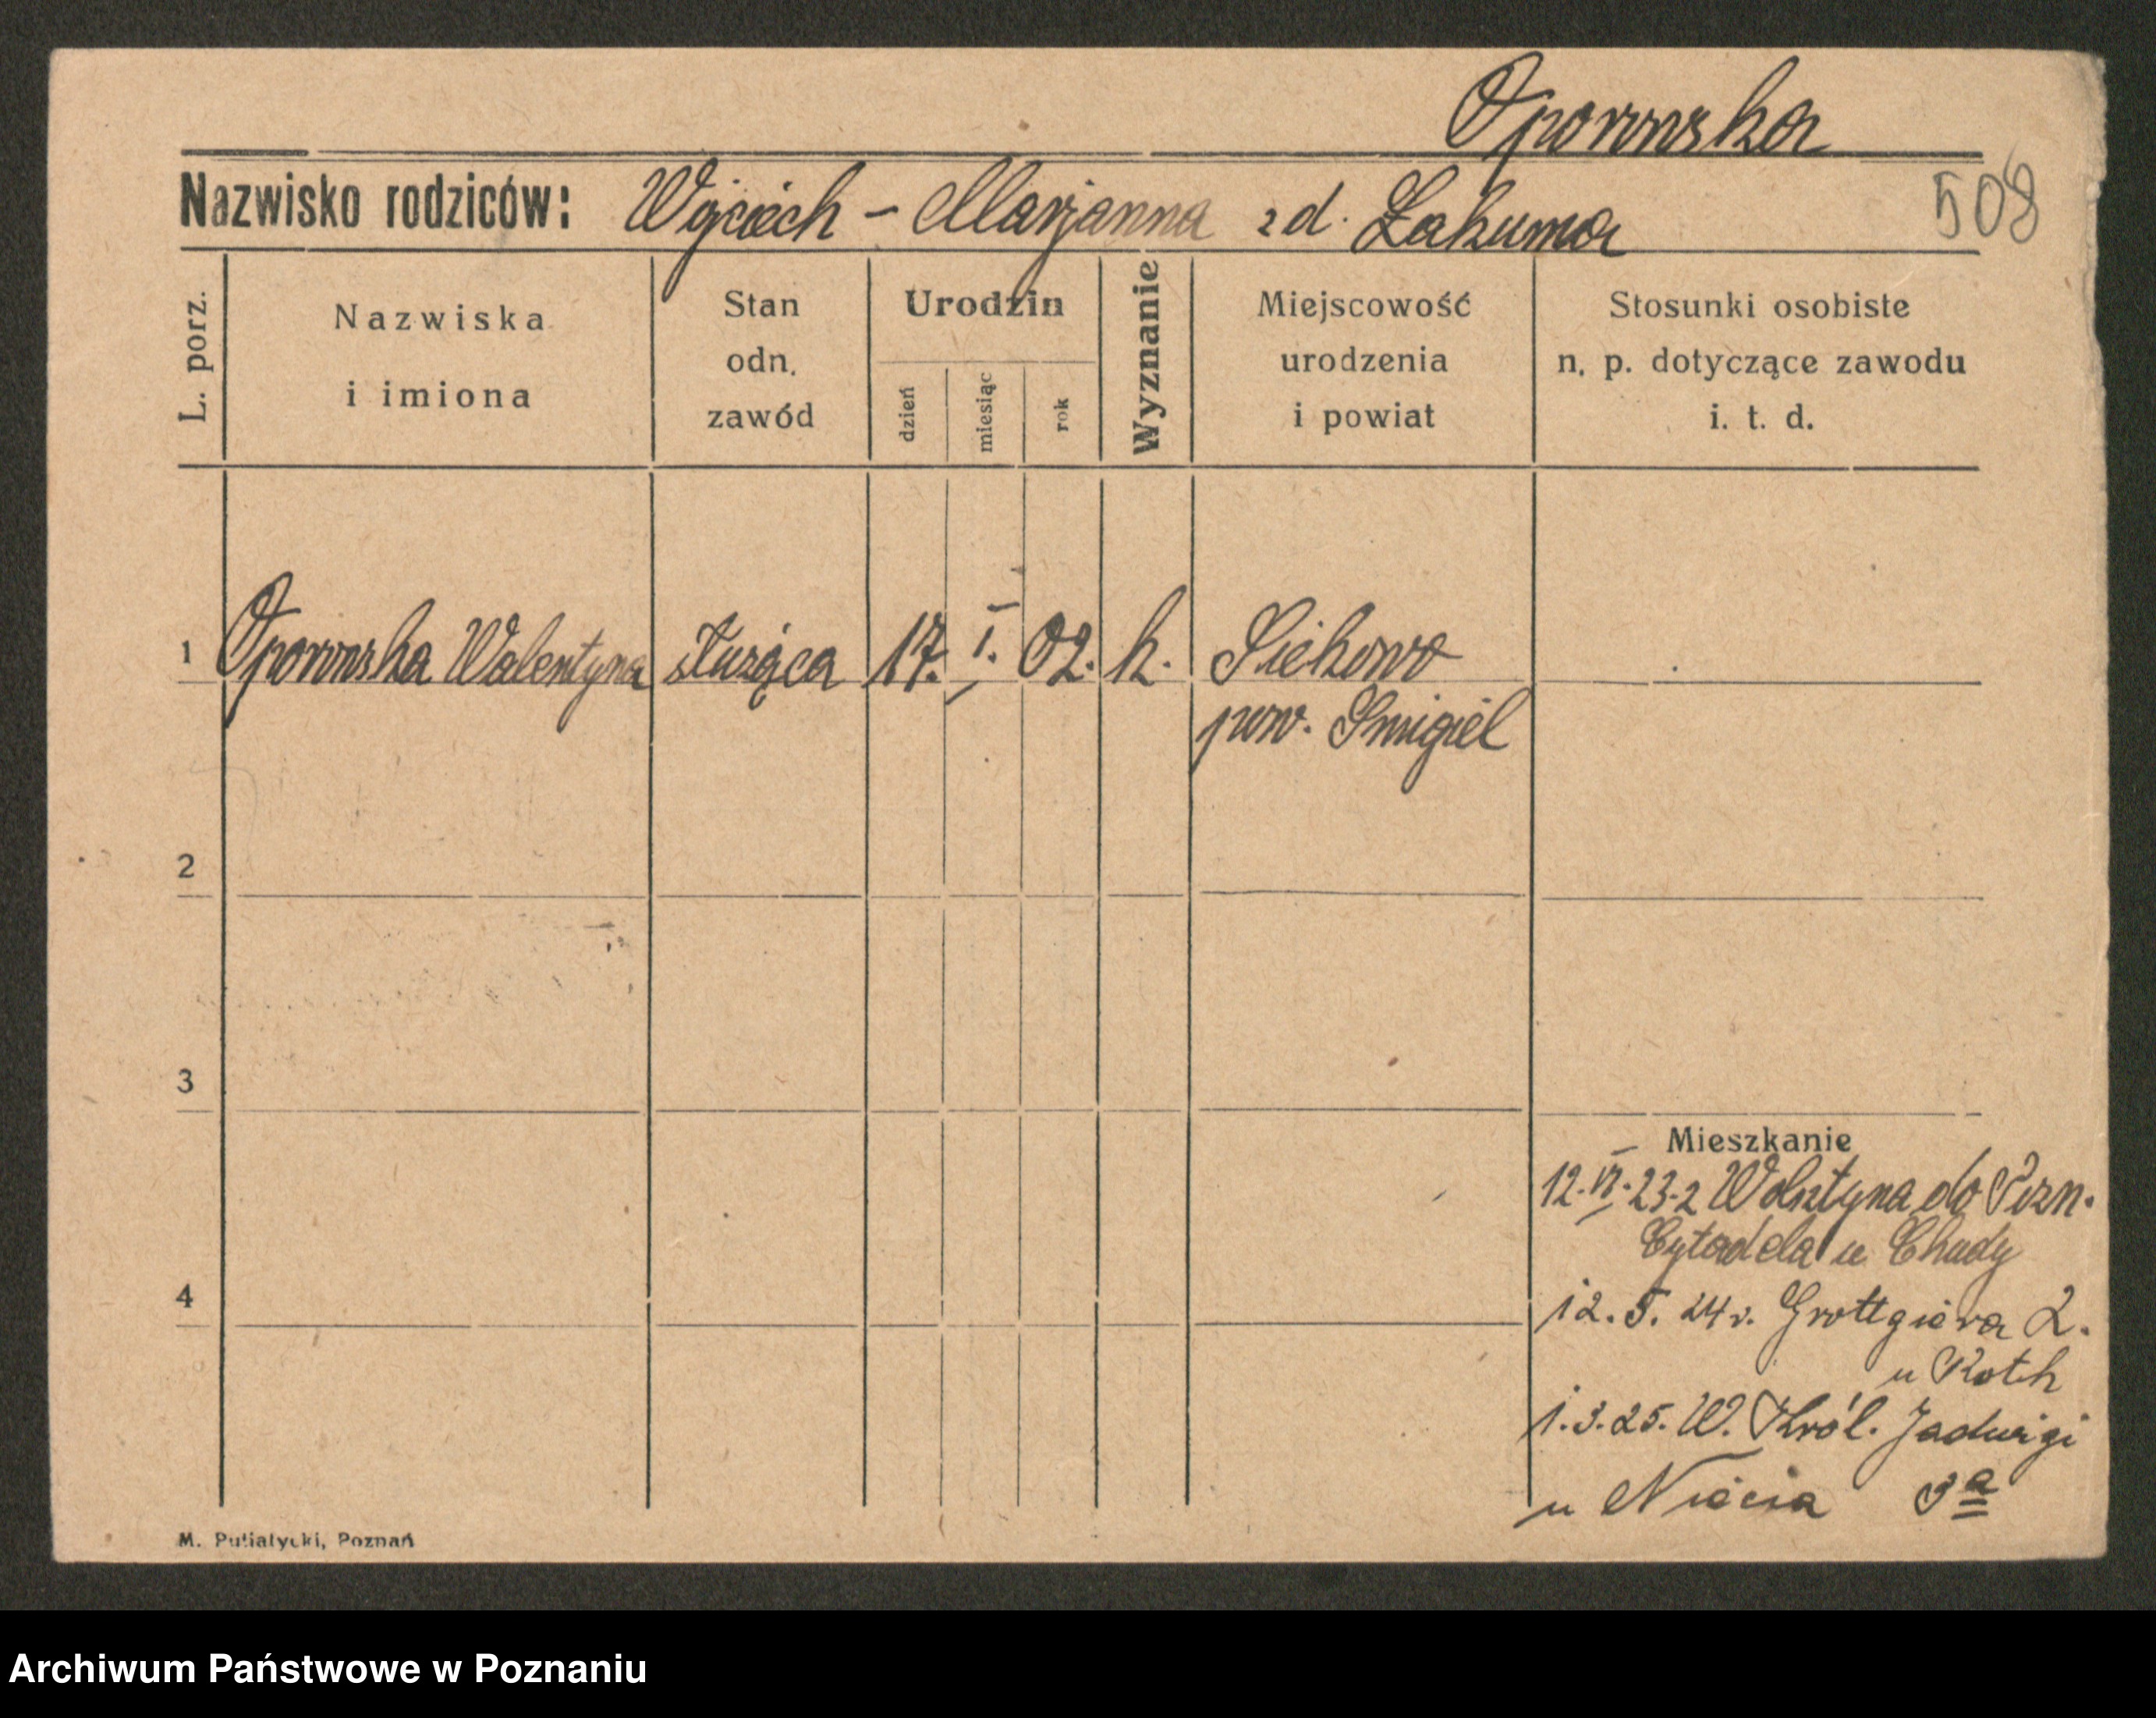 Oporowska
Nazwisko rodziców: Wojciech - Marjanna zd. Łakuma
508
L. porz.
Nazwiska
i imiona
Stan
odn.
zawód
Urodzin
dzień
miesiąc
rok
Wyznanie
Miejscowość
urodzenia
i powiat
Stosunki osobiste
n. p. dotyczące zawodu
i. t. d.
1 Oporowska Walentyna służąca 17. I. 02. k. Siekowo
pow. Smigiel
2
3
4
Mieszkanie
12. VI. 23. z Wolsztyna do Pozn.
Cytadela u Chudy
12. 5. 24 r. Grottgiera 2.
u Kotch
1. 3. 25. W. Król. Jadwigi
u Niecia 3a
M. Putiatycki, Poznań
Archiwum Państwowe w Poznaniu